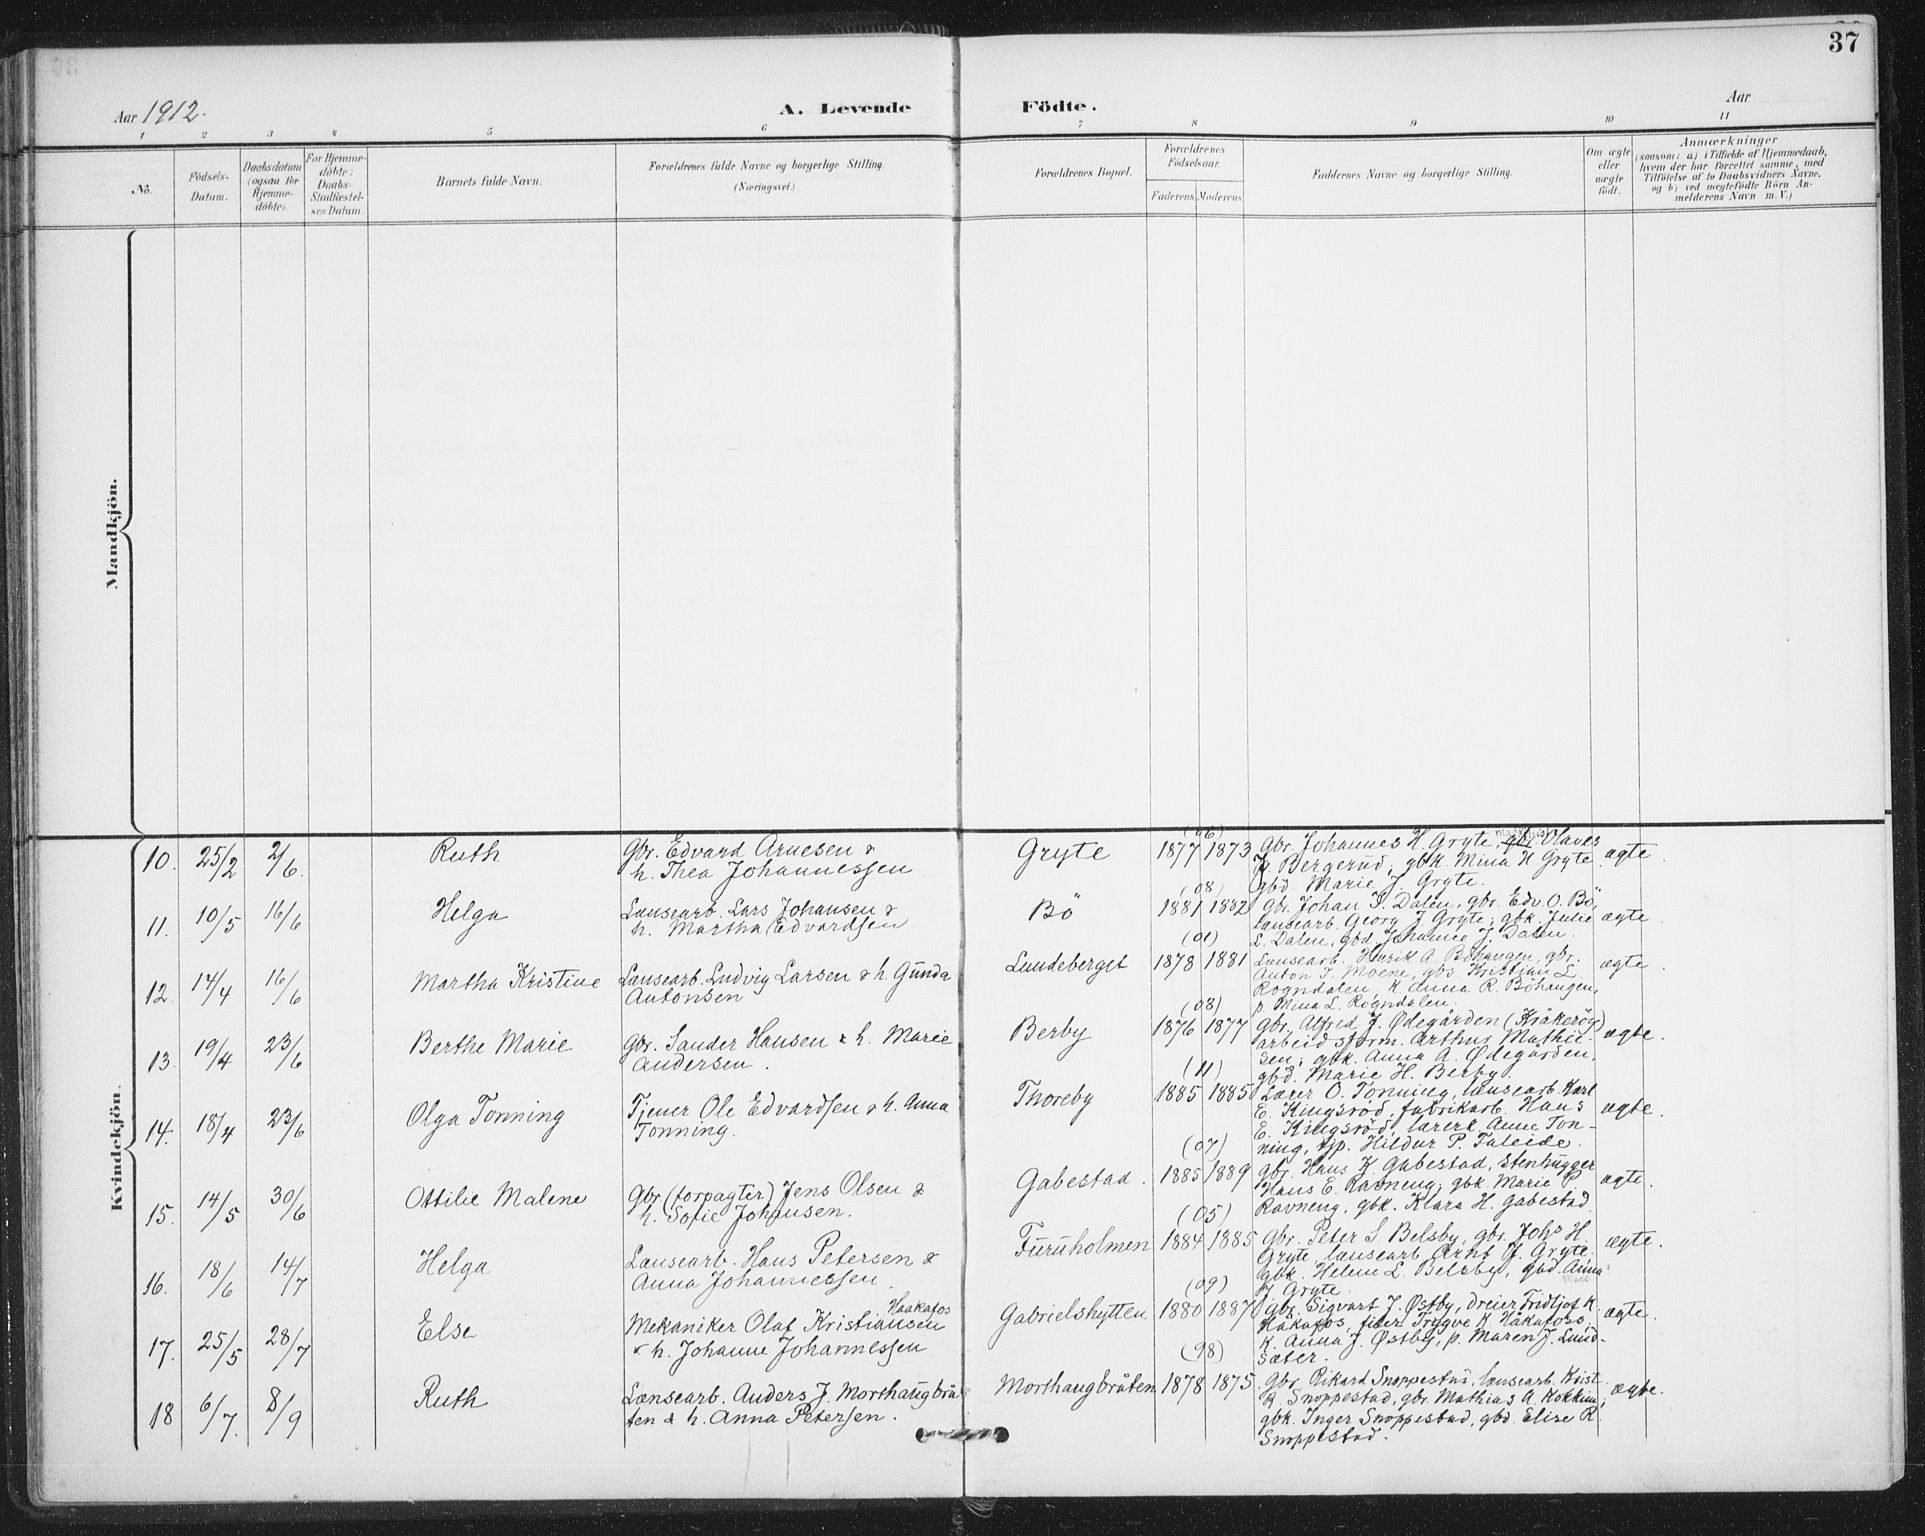 37
Aar 1912.
A. Levende Födte.
Aar
1 2 3 4 5 6 7 8 9 10 11
No.
Födsels-
Datum.
Daabsdatum
(ogsaa for
Hjemme-
döbte).
For Hjemme-
döbte:
Daabs-
Stadfæstel-
ses Datum.
Barnets fulde Navn.
Forældrenes fulde Navne og borgerlige Stilling.
(Næringsvei.)
Forældrenes Bopæl.
Forældrenes
Födselsaar.
Faderens. Moderens.
Faddernes Navne og borgerlige Stilling.
Om ægte
eller
uægte
födt.
Anmærkninger
(saasom: a) i Tilfælde af Hjemmedaab,
hvem der har forrettet samme, med
Tilföielse af to Daabsvidners Navne,
og b) ved uægtefödte Börn An-
melderens Navn m.V.)
Mandkjön.
Kvindekjön.
10. 25/2 2/6. Ruth
Gbr. Edvard Arnesen &
h. Thea Johannessen
Gryte
(06)
1877 1873
Gbr. Johannes H. Gryte, Olaves
J. Bergerud; gbk. Mina H Gryte.
gbd. Marie J. Gryte.
ægte.
11. 10/5 16/6 Helga
Lænsearb. Lars Johansen &
h. Martha Edvardsen
Bö
(08)
1881 1882
Gbr. Johan S. Dalen, gbr. Edv. O. Bö,
lænsearb. Georg J Gryte; gbk. Julie
L. Dalen, gbd. Johanne J. Dalen.
ægte.
12. 14/4 16/6 Martha Kristine
Lænsearb. Ludvig Larsen & h. Gunda
Antonsen
Lundeberget
(01)
1878 1881
Lænsearb. Henrik A. Böhaugen, gbr.
Anton T. Moene, gbs. Kristian L.
Rogndalen, k. Anna R. Böhaugen,
p. Mina L. Rogndalen.
ægte.
13. 19/4 23/6 Berthe Marie
Gbr. Sander Hansen & h. Marie
Andersen.
Berby
(03)
1876 1877
Gbr. Alfred J. Ødegården (Kråkeröy)
arbeidsform. Arthur Mathie-
sen; gbk. Anna A. Ødegården,
gbd. Marie H. Berby.
ægte.
14. 18/4 23/6 Olga Tonning
Tjener Ole Edvardsen & h. Anna
Tonning.
Thoreby
(11)
1885 1885
Lærer O. Tonning, lænsearb. Karl
E. Kingsröd, fabrikarb. Hans
E. Kingsröd, lærerk. Anne Ton-
ning, tjp. Hildur P. Faleide.
ægte.
15. 14/5 30/6 Ottilie Malene
Gbr. (forpagter) Jens Olsen &
h. Sofie Johansen.
Gabestad.
(07)
1885 1889
Gbr. Hans K. Gabestad, stenhugger
Hans E. Ravneng; gbk. Marie P.
Ravneng, gbk. Klara H. Gabestad
ægte.
16. 18/6 14/7 Helga
Lænsearb. Hans Petersen &
Anna Johannessen.
Furuholmen
(05)
1884 1885
Gbr. Peter S. Belsby, gbr. Johs H.
Gryte, lænsearb. Arnt H. Gryte.
gbk. Helene L. Belsby, gbd. Anna
H Gryte.
ægte.
17. 25/5 28/7 Else
Haakafos
Mekaniker Olaf Kristiansen
& h. Johanne Johannessen
Gabrielshytten
(09)
1880 1887
Gbr. Sigvart J. Østby, dreier Fridtjof K.
Håkafos, filer Trygve K. Håkafoss,
k. Anna J. Østby, p. Maren J. Lund-
sæter.
ægte.
18 6/7. 8/9 Ruth
Lænsearb. Anders J. Morthaugbrå-
ten & h. Anna Petersen.
Morthaugbråten
(98)
1878 1875
Gbr. Rikard Snoppestad, lænsearb. Krist.
R. Snoppestad, gbr. Mathias A. Kokkim;
gbk. Inger Snoppestad, gbd. Elise R
Snoppestad.
ægte.